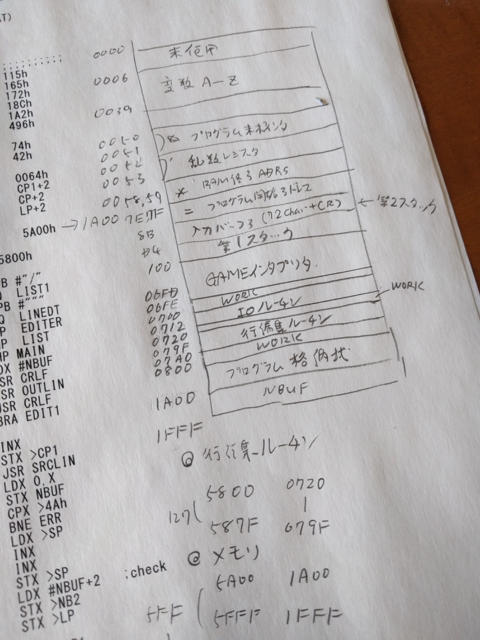 ;;;;;;;;;;
115h
165h
172h
18Ch
1A2h
496h
74h
42h
0064h
CP1+2
CP+2
LP+2
5A00h
5800h
PB #"/"
Q LIST1
PB #"""
Q LINEDT
P EDITER
P LIST
MP MAIN
DX #NBUF
SR CRLF
JSR OUTLIN
JSR CRLF
BRA EDIT1
INX
STX >CP1
JSR SRCLIN
LDX 0,X
STX NBUF
CPX >4Ah
BNE ERR
LDX >SP
INX
INX
STX >SP ;check
LDX #NBUF+2
STX >NB2
STX >LP
0000 未使用
0006 変数 A-Z
0039
0050 & プログラムポインタ
0051 ' 乱数レジスタ
0052 * RAM終了ADRS
0053 = プログラム開始アドレス
58,59 入力バッファ (72char+CR) ← 第2スタック
→ 1A00
8B 第1スタック
D4
100 GAMEインタプリタ
06FD WORK
06FE IOルーチン
0700 WORK
0712 行編集ルーチン
0720 WORK
079F
07A0 プログラム格納域
0800
1A00 NBUF
1FFF
◎ 行編集ルーチン
5800 0720
127(
587F 079F
◎ メモリ
5A00 1A00
5FF
5FFF 1FFF